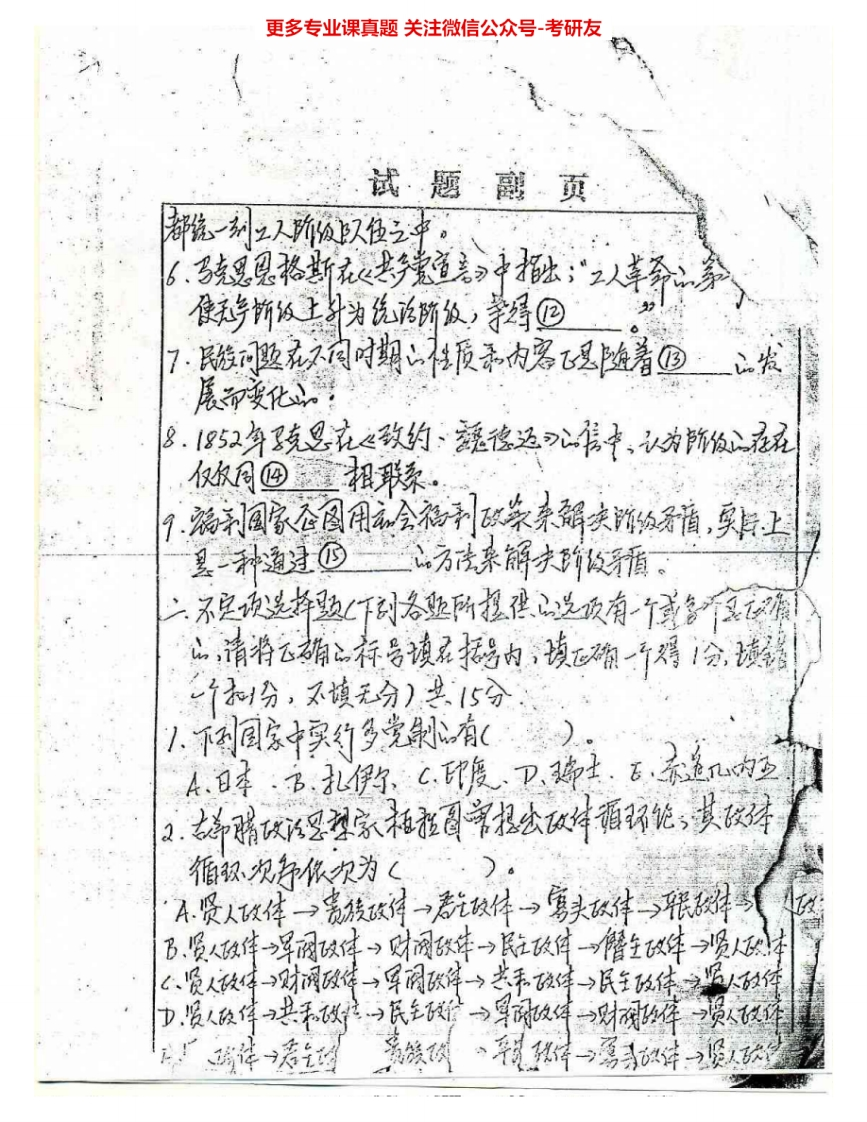 更多专业课真题 关注微信公众号-考研友
试题副页
都统一到工人阶级队伍之中。
6.马克思恩格斯在《共产党宣言》中指出:“工人革命的第
使无产阶级上升为统治阶级,争得⑫____。”
7.民族问题在不同时期的性质和内容正是随着⑬____的发
展而变化的。
8.1852年马克思在《致约·魏德迈》的信中、认为阶级的存在
仅仅同⑭____相联系。
9.福利国家企图用社会福利政策来解决阶级矛盾,实际上
是一种通过⑮____的方法来解决阶级矛盾。
二.不定项选择题(下列各题所提供的选项有一个或多个是正确
的,请将正确的标号填在括号内,填正确一个得1分,填错
一个扣1分,不填无分)共15分.
1.下列国家中实行多党制的有(  )。
A.日本.B.扎伊尔、C.印度、D.瑞士.E.赤道几内亚
2.古希腊政治思想家柏拉图曾提出政体循环论,其政体
循环次序依次为(  )。
A.贤人政体→贵族政体→君主政体→寡头政体→平民政体→
B.贤人政体→军阀政体→财阀政体→民主政体→僭主政体→贤人政体
C.贤人政体→财阀政体→军阀政体→共和政体→民主政体→贤人政体
D.贤人政体→共和政体→民主政体→军阀政体→财阀政体→贤人政体
政体→君主政 贵族政 →平民政体→寡头政体→贤人政体